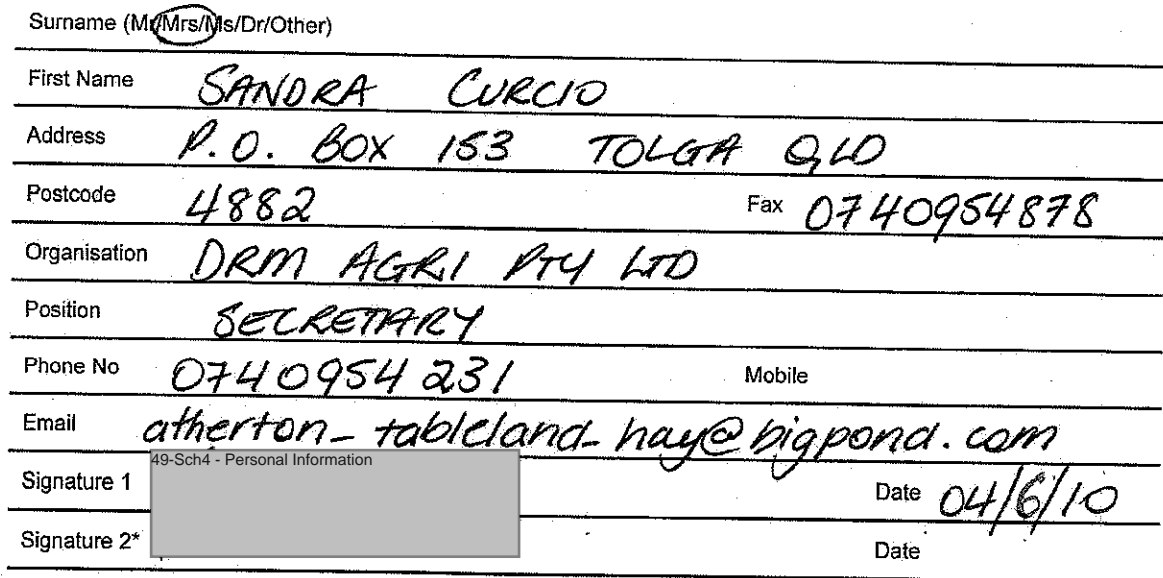 Surname (Mr/Mrs/Ms/Dr/Other)
First Name SANDRA CURCIO
Address P.O. BOX 153 TOLGA QLD
Postcode 4882 Fax 0740954878
Organisation DRM AGRI PTY LTD
Position SECRETARY
Phone No 0740954231 Mobile
Email atherton_tableland_hay@bigpond.com
49-Sch4 - Personal Information
Signature 1 Date 04/6/10
Signature 2* Date